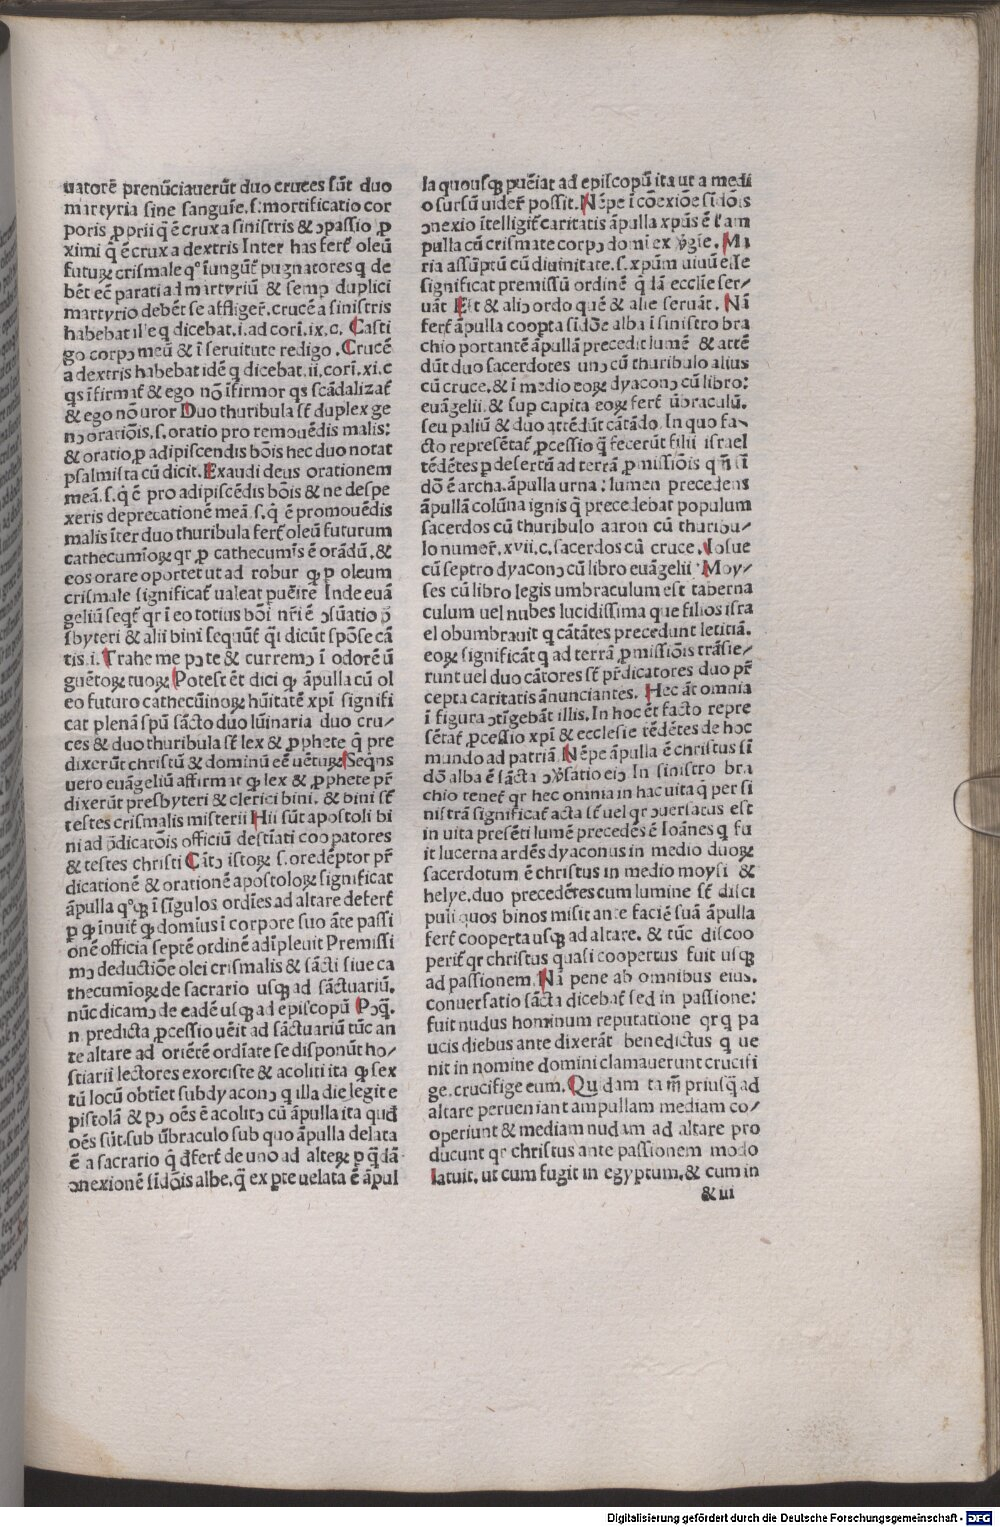 uatorē prenūciauerūt duo cruces sūt duo
martyria sine sanguīe.s:mortificatio cor
poris ꝓprii q̄ ē crux a sinistris & ɔpassio ꝓ
ximi q̄ ē crux a dextris Inter has fert̄ oleū
futuꝝ crismale qº īungūt̄ pugnatores q de
bēt ec̄ parati ad martyriū & semꝑ duplici
martyrio debēt se affliger̄.crucē a sinistris
habebat ille q dicebat.i.ad cori.ix.c. Casti
go corpɔ meū & ī seruitute redigo. Crucē
a dextris habebat idē q dicebat.ii.cori.xi.c
qs īfirmat̄ & ego nō īfirmor qs scādalizat̄
& ego nō uror Duo thuribula st̄ duplex ge
nɔ oratiōis.s.oratio pro remouēdis malis:
& oratio ꝓ adipiscendis bōis hec duo notat
psalmista cū dicit. Exaudi deus orationem
meā.s.q̄ ē pro adipiscēdis bōis & ne despe
xeris deprecationē meā.s.q̄ ē promouēdis
malis īter duo thuribula fert̄ oleū futurum
cathecumīoꝝ qr ꝓ cathecumīs ē orādū.&
eos orare oportet ut ad robur qꝫ ꝑ oleum
crismale significat̄ ualeat puēire Inde euā
geliū seqt̄ qr ī eo totius bōi nr̄i ē ɔsūatio p̄
sbyteri & alii bini sequūt̄ q̄i dicūt spōse cā
tis.i. Trahe me pɔ te & curremɔ ī odorē ū
guētoꝝ tuoꝝ Potest ēt dici qꝫ āpulla cū ol
eo futuro cathecūinoꝝ hūitatē xp̄i signifi
cat plenā spū sācto duo lūinaria duo cru/
ces & duo thuribula st̄ lex & ꝓphete q̄ pre
dixerūt christū & dominū eē uētuꝝ Seq̄ns
uero euāgeliū affirmat qꝫ lex & ꝓphete pr̄
dixerūt presbyteri & clerici bini. & bini st̄
testes crismalis misterii Hii sūt apostoli bi
ni ad p̄dicatōis officiū destīati coopatores
& testes christi Cātɔ istoꝝ s.oredēptor pr̄
dicationē & orationē apostoloꝝ significat
āpulla qºqꝫ ī sīgulos ordīes ad altare defert̄
ꝑ qꝫ īnuit̄ qꝫ domīus ī corpore suo āte passi
onē officia septē ordinē adīpleuit Premissi
mɔ deductiōe olei crismalis & sācti siue ca
thecumīoꝝ de sacrario usqꝫ ad sāctuariū.
nūc dicamɔ de eadē usqꝫ ad episcopū Pɔq̄.
n predicta ꝓcessio uēit ad sāctuariū tūc an
te altare ad oriētē ordīate se disponūt ho/
stiarii lectores exorciste & acoliti ita qꝫ sex
tū locū obtīet subdyaconɔ q illa die legit e
pistolā & pɔ oēs ē acolitɔ cū āpulla ita quđ
oēs sūt.sub ūbraculo sub quo āpulla delata
ē a sacrario q̄ đfert̄ de uno ad alteꝝ ꝑ q̄dā
ɔnexionē sīdōis albe.q̄ ex pte uelata ē āpul
la quousqꝫ puēiat ad episcopū ita ut a medi
o sursū uider̄ possit. Nēpe ī cōexiōe sīdōis
ɔnexio ītelligit̄ caritatis āpulla xpūs ē tam
pulla cū crismate corpɔ domī ex ūgie. Ma
ria assūptū cū diuinitate.s.xpūm uiuū esse
significat premissū ordinē q̄ lā ecclie ser/
uāt Est & aliɔ ordo quē & alie seruāt. Nā
fert̄ āpulla coopta sīdōe alba ī sinistro bra
chio portantē āpullā precedit lumē & attē
dūt duo sacerdotes unɔ cū thuribulo alius
cū cruce.& ī medio eoꝝ dyaconɔ cū libro:
euāgelii.& sup capita eoꝝ fert̄ ūbraculū.
seu paliū & duo attēdūt cātādo.In quo fa/
cto represētat̄ ꝓcessio q̄ fecerūt filii israel
tēdētes ꝑ desertū ad terrā ꝓmissiōis qn̄ sī
dō ē archa.āpulla urna: lumen precedens
āpullā colūna ignis q̄ precedebat populum
sacerdos cū thuribulo aaron cū thuribu/
lo numer̄.xvii.c.sacerdos cū cruce. Iosue
cū septro dyaconɔ cū libro euāgelii Moy/
ses cū libro legis umbraculum est taberna
culum uel nubes lucidissima que filios isra
el obumbrauit q cātātes precedunt letitiā.
eoꝝ significāt q ad terrā ꝓmissiōis trāsie/
runt uel duo cātores st̄ pr̄dicatores duo pr̄
cepta caritatis ānunciantes. Hec āt omnia
ī figura ɔtīgebāt illis.In hoc ēt facto repre
sētat̄ ꝓcessio xp̄i & ecclesie tēdētes de hoc
mundo ad patriā. Nēpe āpulla ē christus sī
dō alba ē sācta ɔūsatio eiɔ In sinistro bra
chio tenet̄ qr hec omnia in hac uita q per si
nistrā significat̄ acta st̄ uel qr ɔuersatus est
in uita presēti lumē precedēs ē Ioānes q fu
it lucerna ardēs dyaconus in medio duoꝝ
sacerdotum ē christus in medio moysi &
helye.duo precedētes cum lumine st̄ disci
puli quos binos misit ante faciē suā āpulla
fert̄ cooperta usqꝫ ad altare. & tūc discoo
perit̄ qr christus quasi coopertus fuit usqꝫ
ad passionem. Nā pene ab omnibus eius.
conuersatio sācta dicebat̄ sed in passione:
fuit nudus hominum reputatione qr q pa
ucis diebus ante dixerāt benedictus q ue
nit in nomine domini clamauerunt crucifi
ge.crucifige eum. Quidam tam̄ priusq̄ ad
altare perueniant ampullam mediam co/
operiunt & mediam nudam ad altare pro
ducunt qr christus ante passionem modo
latuit.ut cum fugit in egyptum.& cum in
& ui
Digitalisierung gefördert durch die Deutsche Forschungsgemeinschaft - DFG